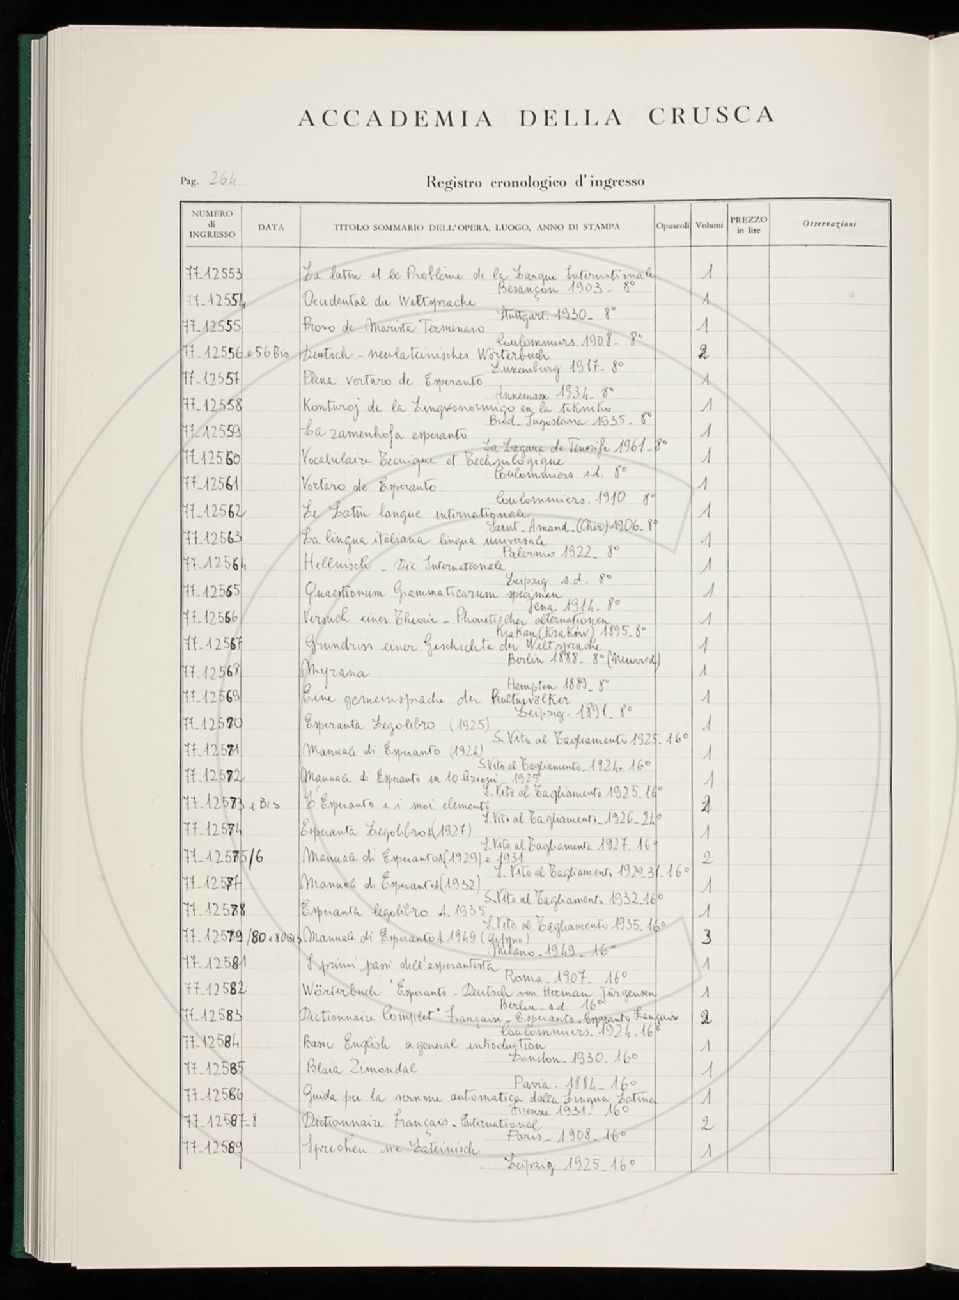 ACCADEMIA DELLA CRUSCA
Pag. 264 Registro cronologico d'ingresso
NUMERO di INGRESSO DATA TITOLO SOMMARIO DELL'OPERA, LUOGO, ANNO DI STAMPA Opuscoli Volumi PREZZO in lire Osservazioni
77-12553 Le latin et le Problème de la Langue Internationale 1
Besançon 1903 - 8°
77-12554 Occidental die Weltsprache 1
Stuttgart. 1930 - 8°
77-12555 Provo de Marista Terminaro 1
Coulommiers. 1908 - 8°
77-12556 e 56 Bis Deutsch - neulateinisches Wörterbuch 2
Luxemburg 1917 - 8°
77-12557 Plena vortaro de Esperanto 1
Annemasse 1934 - 8°
77-12558 Konturoj de la Lingvonormigo en la tekniko 1
Bled - Jugoslavia 1935 - 8°
77-12559 La zamenhofa esperanto 1
La Laguna de Tenerife 1961 - 8°
77-12560 Vocabulaire Tecnique et Technologique 1
Coulommiers s.d. 8°
77-12561 Vortaro de Esperanto 1
Coulommiers. 1910 8°
77-12562 Le Latin langue internationale 1
Saint-Amand-(Cher) 1906 - 8°
77-12563 La lingua italiana lingua universale 1
Palermo 1922 - 8°
77-12564 Hellenisch - Die Internationale 1
Leipzig s.d. 8°
77-12565 Quaestionum Grammaticarum specimen 1
Jena 1914 - 8°
77-12566 Versuch einer Theorie - Phonetischer alternationen 1
Krakau (Kraków) 1895 - 8°
77-12567 Grundriss einer Geschichte der Weltsprache 1
Berlin 1888 - 8° (Neuwied)
77-12568 Myrana 1
Kempten 1889 - 8°
77-12569 Eine gemeinsprache der Kulturvölker 1
Leipzig - 1891 - 8°
77-12570 Esperanta Legolibro (1925) 1
S. Vito al Tagliamento 1925 - 16°
77-12571 Manuale di Esperanto (1924) 1
S. Vito al Tagliamento - 1924 - 16°
77-12572 Manuale di Esperanto in 10 lezioni - 1925 1
S. Vito al Tagliamento 1925 - 16°
77-12573 e Bis L'Esperanto e i suoi elementi 2
S. Vito al Tagliamento - 1926 - 24°
77-12574 Esperanta Legolibro (1927) 1
S. Vito al Tagliamento 1927 - 16°
77-12575/6 Manuale di Esperanto (1929) e 1931 2
S. Vito al Tagliamento 1929-31 - 16°
77-12577 Manuale di Esperanto (1932) 1
S. Vito al Tagliamento 1932 - 16°
77-12578 Esperanta legolibro 1935 1
S. Vito al Tagliamento 1935 - 16°
77-12579/80 e 80 Bis Manuale di Esperanto 1949 3
Milano - 1949 - 16°
77-12581 I primi passi dell'esperantista 1
Roma - 1907 - 16°
77-12582 Wörterbuch Esperanto - Deutsch von Herman Jürgensen 1
Berlin s.d. 16°
77-12583 Dictionnaire Complet Français - Esperanto - Esperanto Français 2
Coulommiers - 1924 - 16°
77-12584 Basic English a general introduction 1
London - 1930 - 16°
77-12585 Blaia Zimondal 1
Pavia - 1884 - 16°
77-12586 Guida per la versione automatica dalla Lingua Latina 1
Firenze 1931 - 16°
77-12587-8 Dictionnaire Français - International 2
Paris - 1908 - 16°
77-12589 Sprechen Sie Lateinisch 1
Leipzig 1925 - 16°